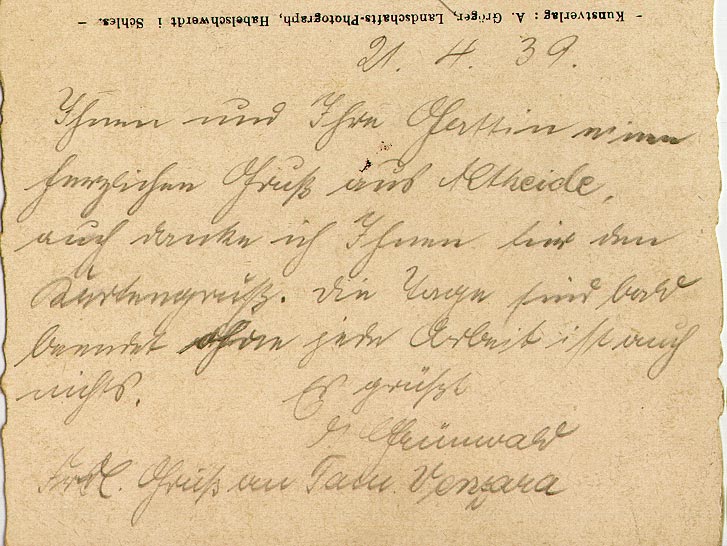 - Kunstverlag: A. Gröger, Landschafts-Photograph, Habelschwerdt i Schles. -
21. 4. 39.
Ihnen und Ihre Gattin einen
herzlichen Gruß aus Altheide,
auch danke ich Ihnen für den
Kartengruß. Die Tage sind bald
beendet ohne jede Arbeit ist auch
nichts. Es grüßt
Grünwald
Frdl. Gruß an Fam.